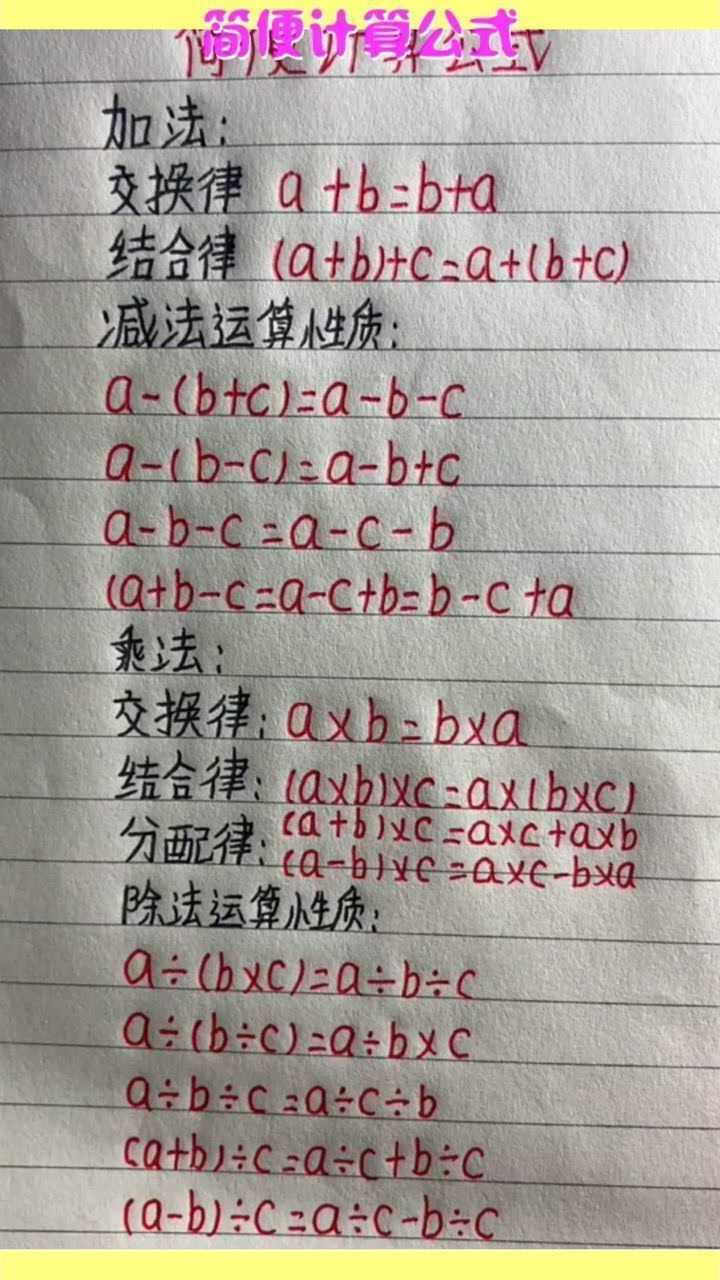 简便计算公式
简便计算公式
加法:
交换律 a+b=b+a
结合律 (a+b)+c=a+(b+c)
减法运算性质:
a-(b+c)=a-b-c
a-(b-c)=a-b+c
a-b-c=a-c-b
(a+b-c=a-c+b=b-c+a
乘法:
交换律: a×b=b×a
结合律: (a×b)×c=a×(b×c)
分配律: (a+b)×c=a×c+a×b
(a-b)×c=a×c-b×a
除法运算性质:
a÷(b×c)=a÷b÷c
a÷(b÷c)=a÷b×c
a÷b÷c=a÷c÷b
(a+b)÷c=a÷c+b÷c
(a-b)÷c=a÷c-b÷c